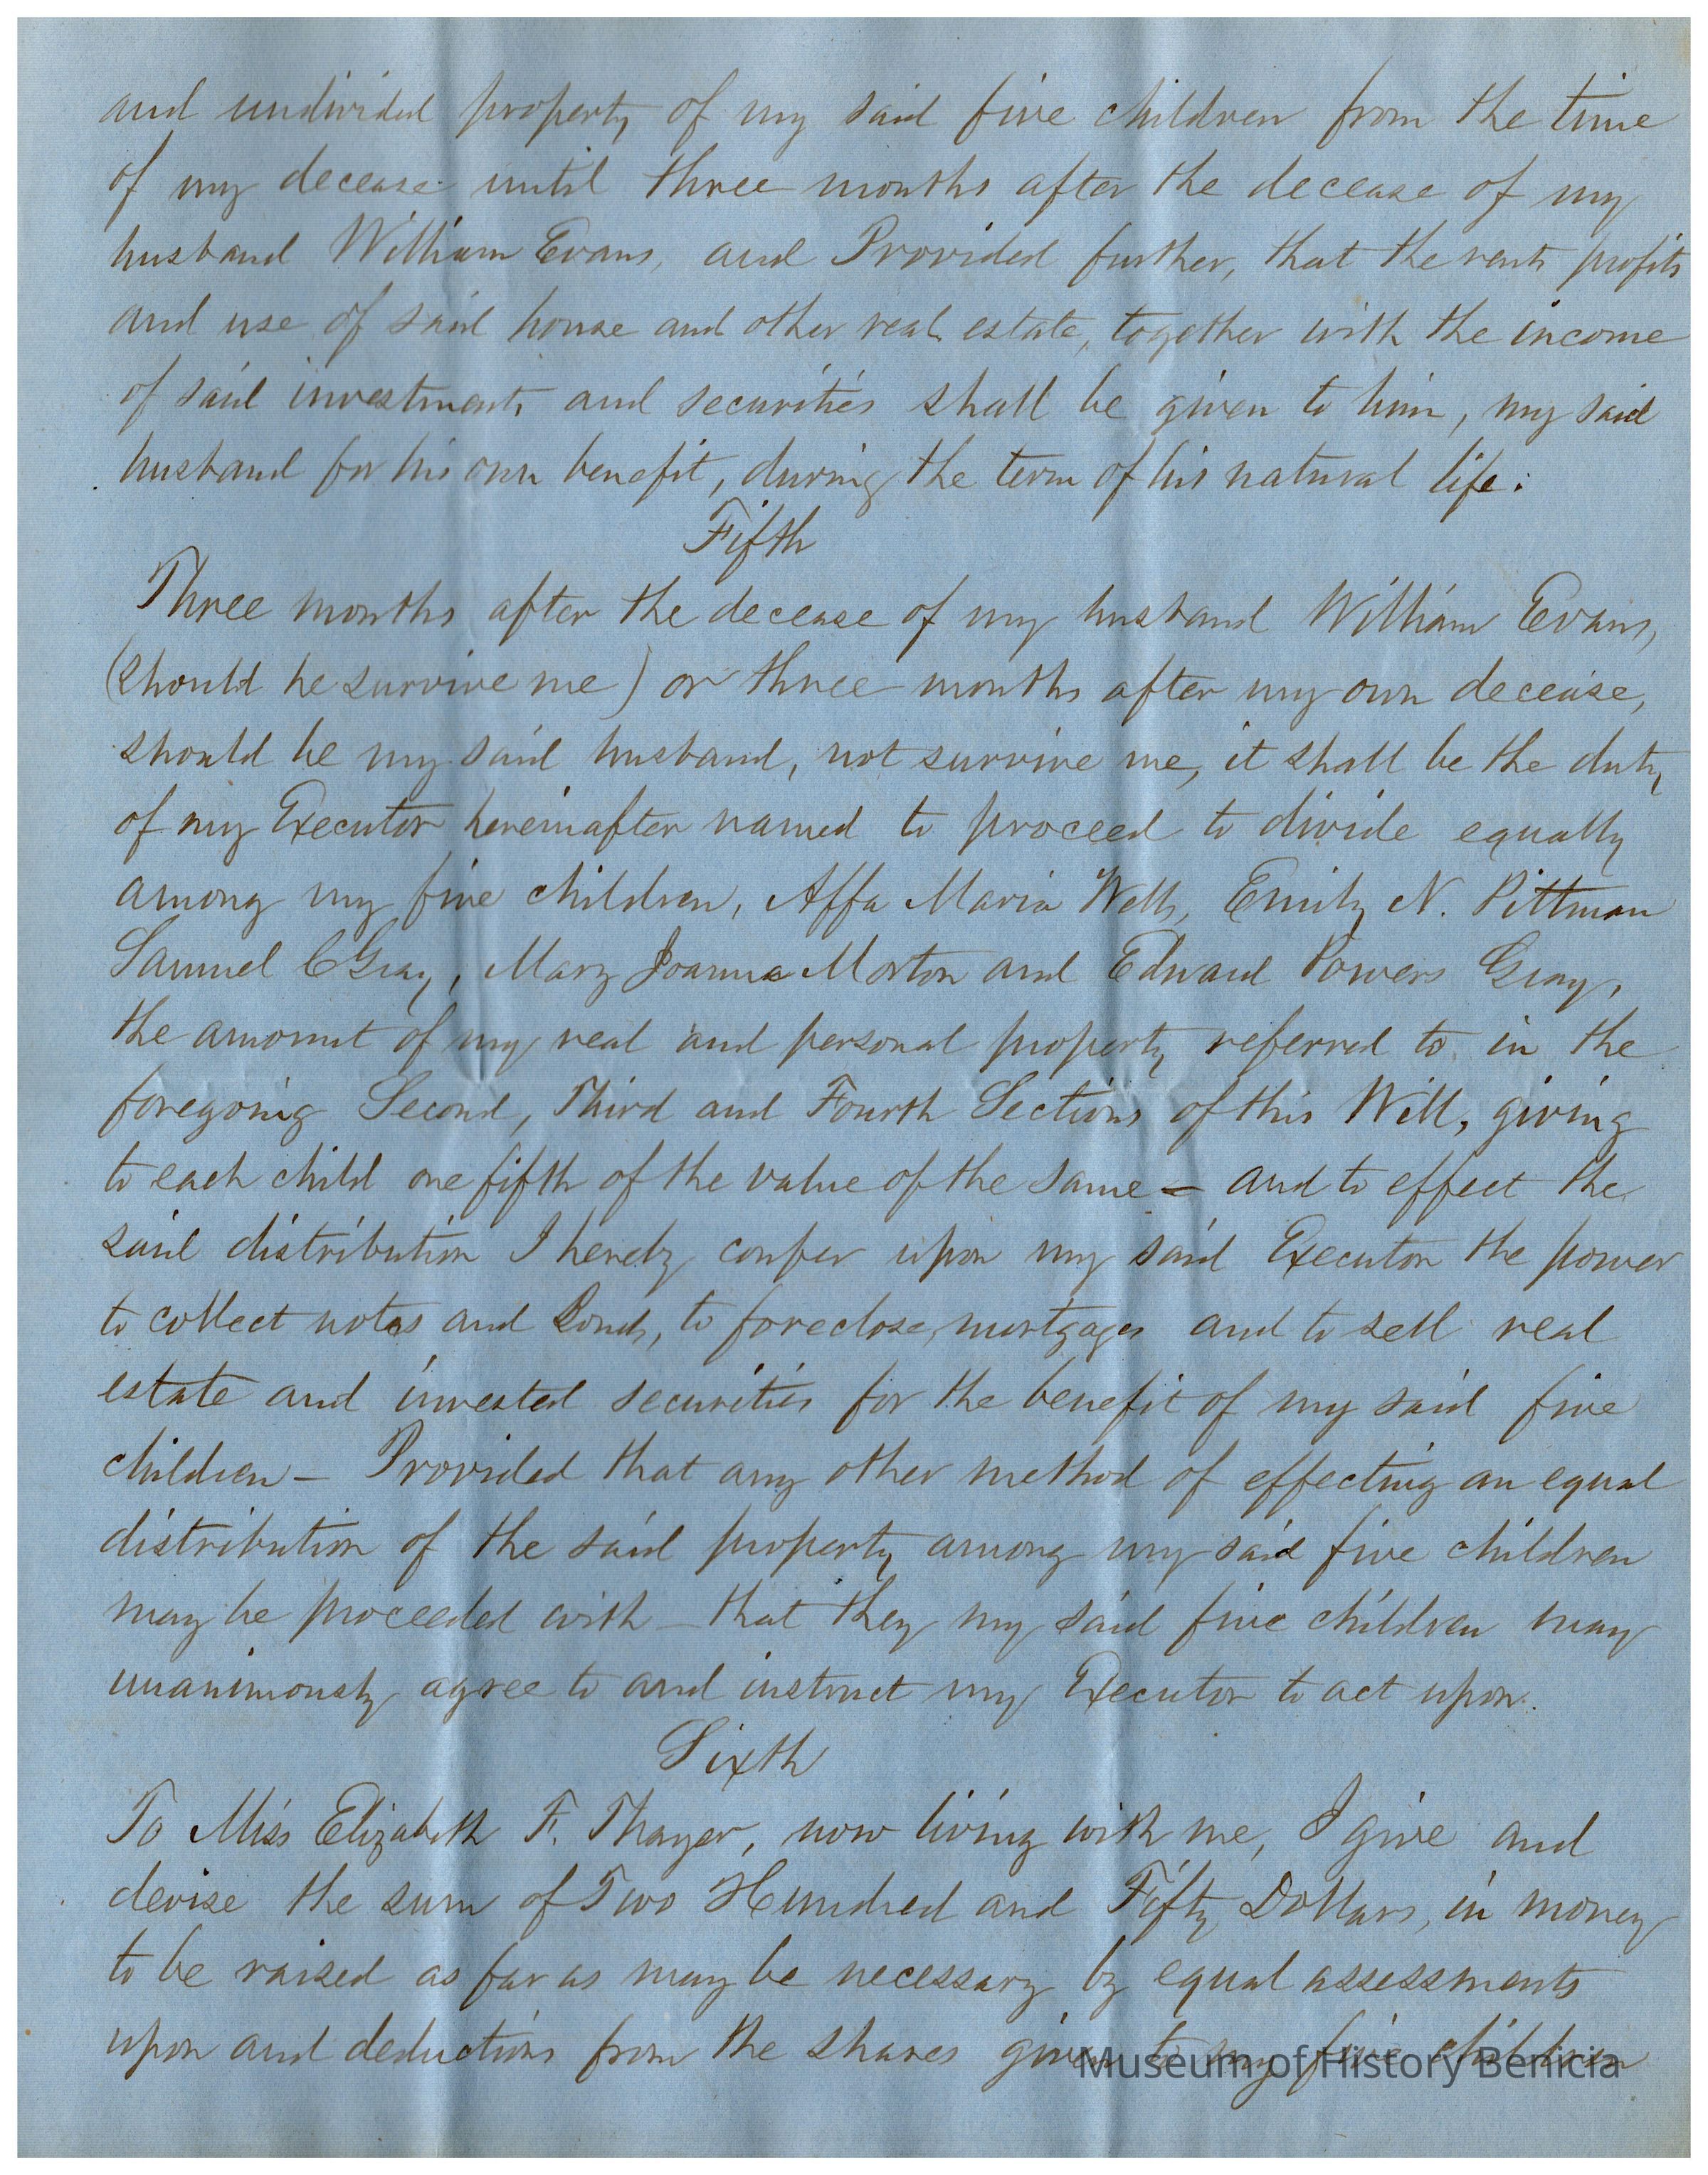 and undivided property of my said five children from the time
of my decease until three months after the decease of my
husband William Evans, and Provided further, that the rents profits
and use of said house and other real estate, together with the income
of said investments and securities shall be given to him, my said
husband for his own benefit, during the term of his natural life.
Fifth
Three months after the decease of my husband William Evans,
(should he survive me) or three months after my own decease,
should he my said husband, not survive me, it shall be the duty
of my Executor hereinafter named to proceed to divide equally
among my five children, Affa Maria Wells, Emily N. Pittman
Samuel C Gray, Mary Joanna Morton and Edward Powers Gray,
the amount of my real and personal property referred to in the
foregoing Second, Third and Fourth Sections of this Will, giving
to each child one fifth of the value of the same - and to effect the
said distribution I hereby confer upon my said Executor the power
to collect notes and Bonds, to foreclose mortgages and to sell real
estate and invested securities for the benefit of my said five
children - Provided that any other method of effecting an equal
distribution of the said property among my said five children
may be proceeded with - that they my said five children may
unanimously agree to and instruct my Executor to act upon.
Sixth
To Miss Elizabeth F. Thayer, now living with me, I give and
devise the sum of Two Hundred and Fifty Dollars, in money
to be raised as far as may be necessary by equal assessments
upon and deductions from the shares given to my five children
Museum of History Benicia